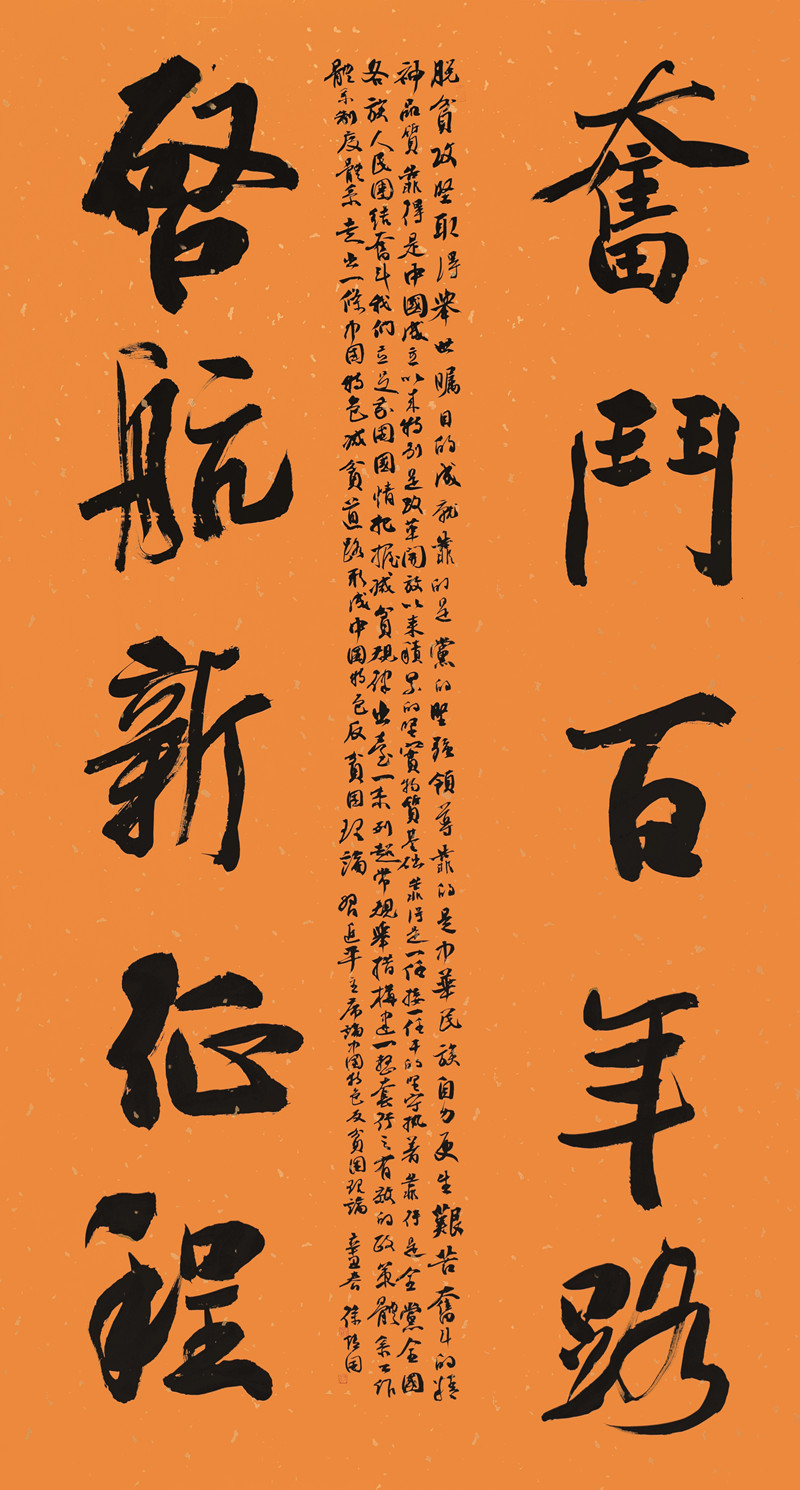 奮鬥百年路
脱貧攻堅取得舉世矚目的成就靠的是黨的堅强領導靠的是中華民族自力更生艱苦奮斗的精
神品質靠得是中國成立以来特别是改革開放以来積累的堅實物質基础靠得是一任接一任干的堅守执著靠得是全黨全國
各族人民團结奮斗我們立足我國國情把握减貧規律出臺一系列超常規舉措構建一整套行之有效的政策體系工作
體系制度體系走出一條中国特色减貧道路形成中国特色反貧困理論 習近平主席論中国特色反貧困理論 辛丑春 徐国
啓航新征程